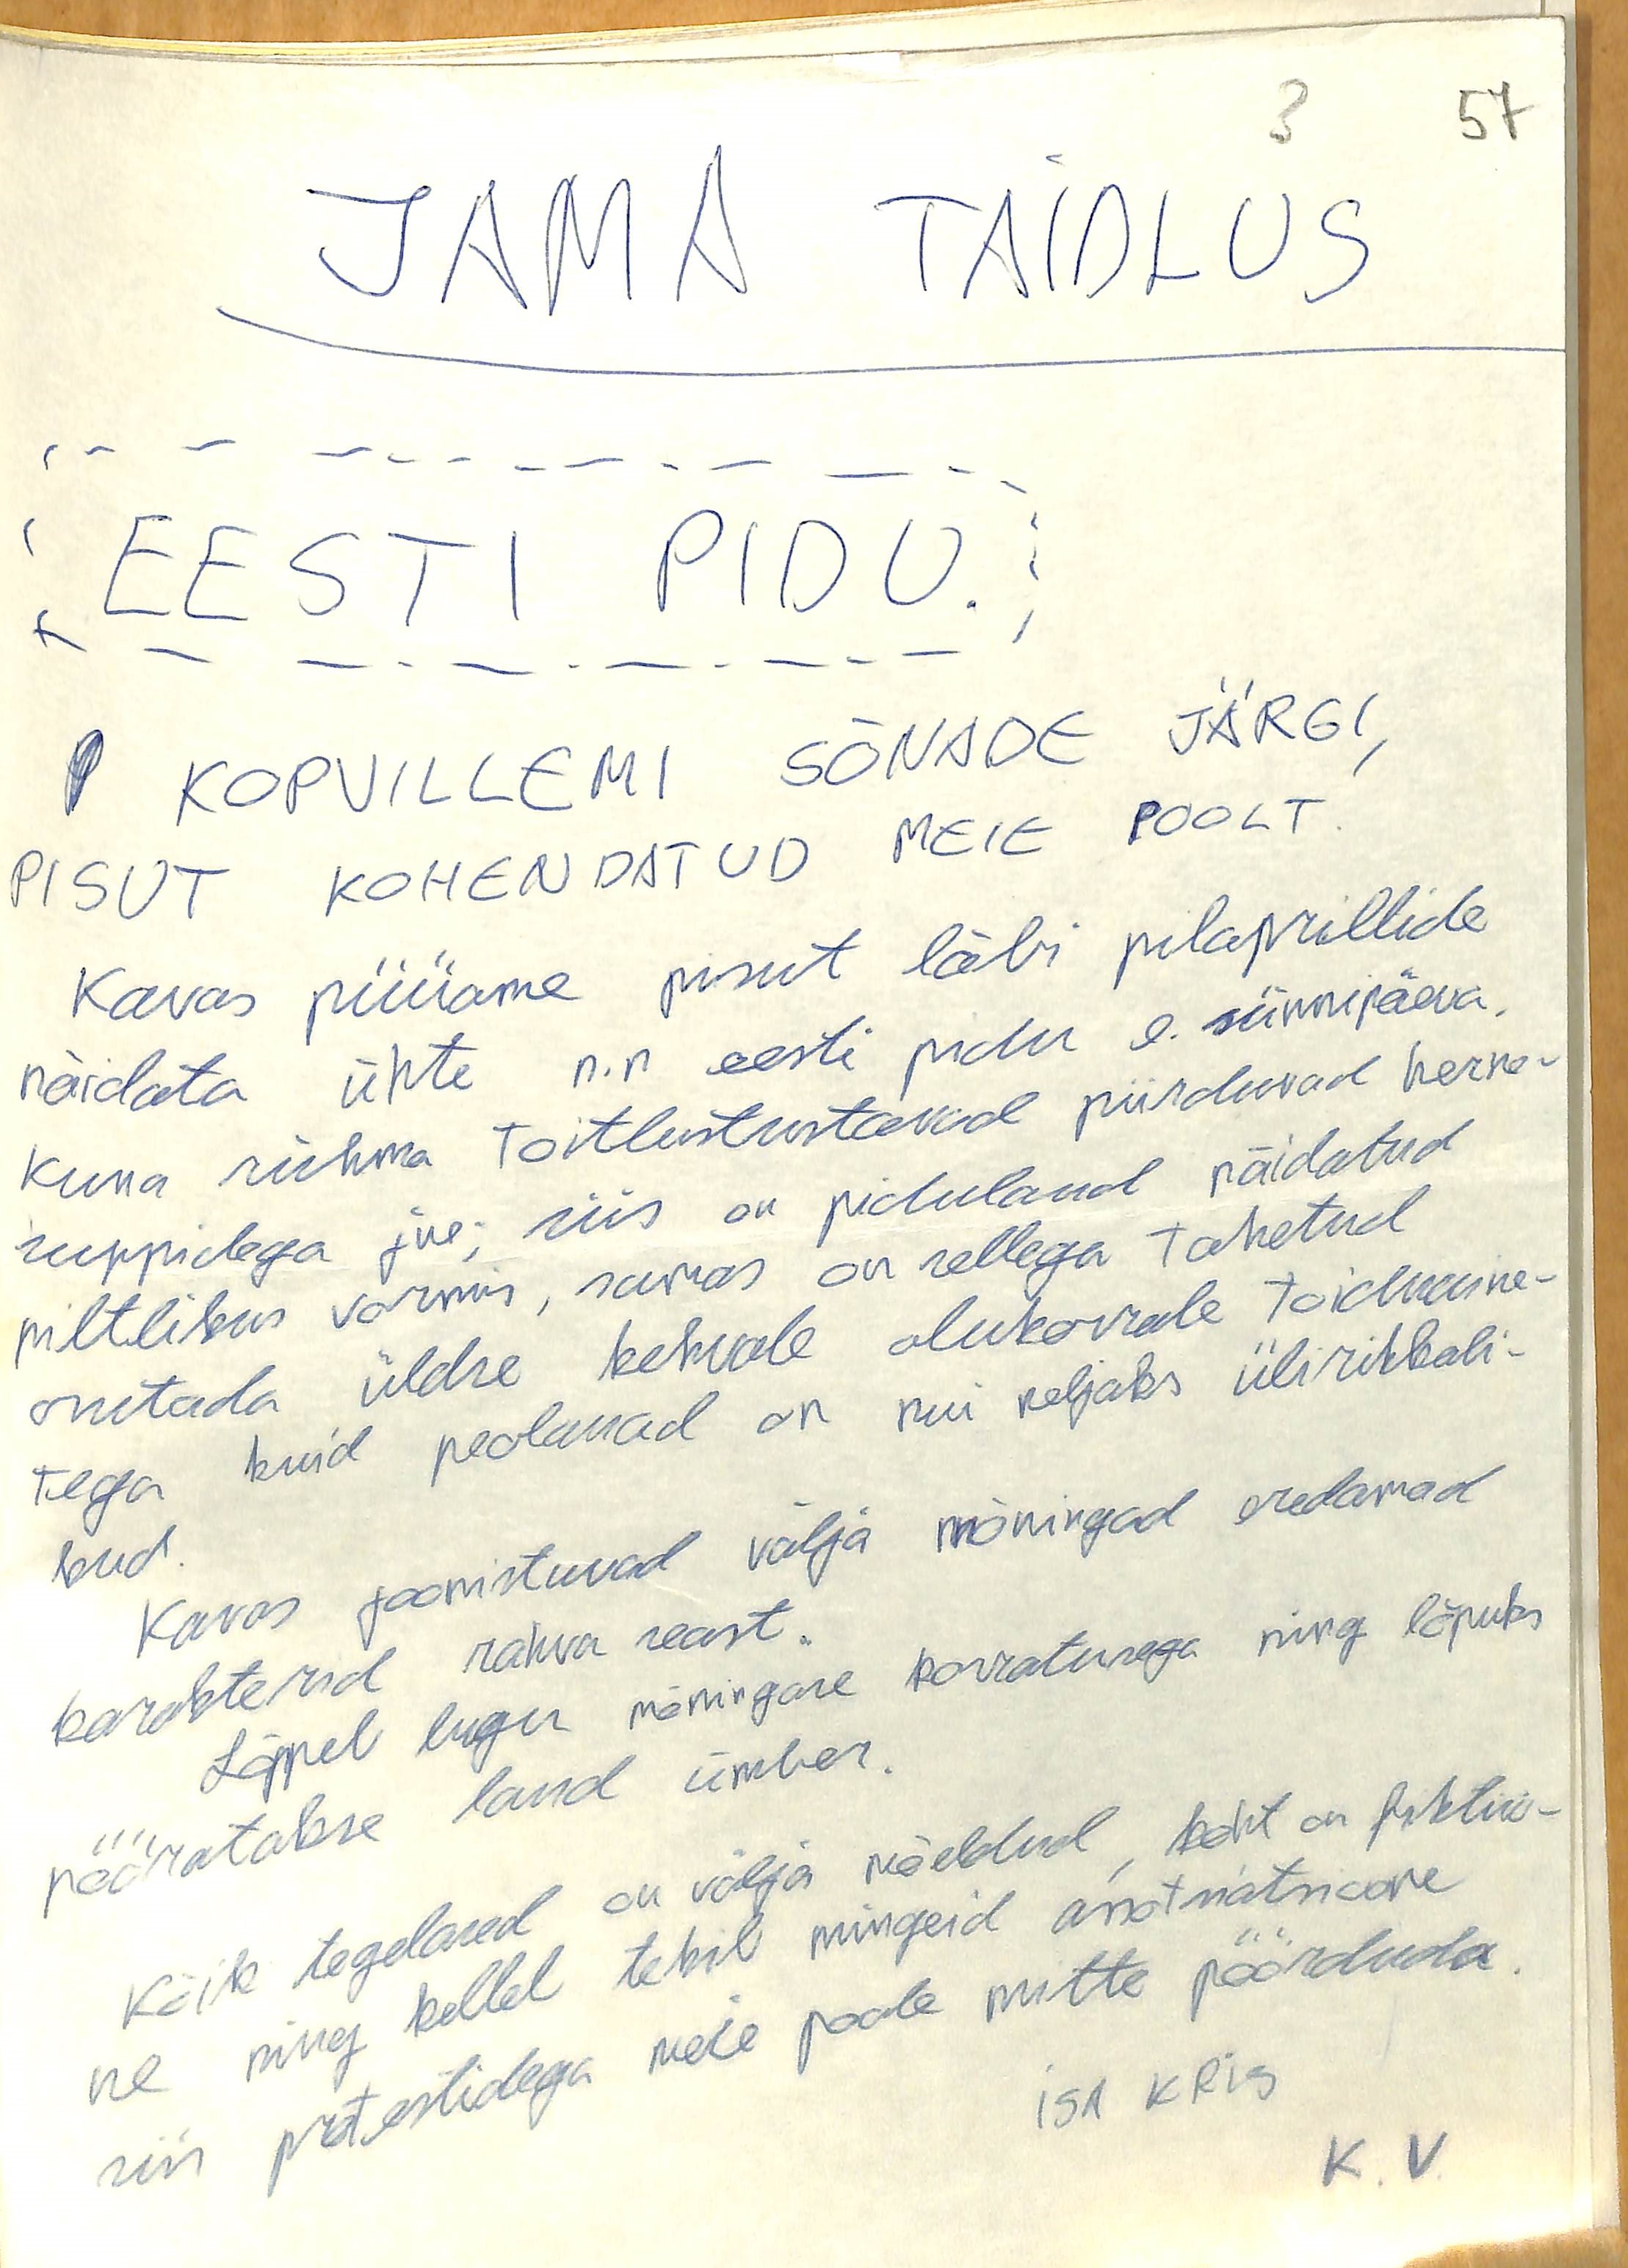 3 57
JAMA TAIDLUS
EESTI PIDU.
P KOPVILLEMI SÕNADE JÄRGI,
PISUT KOHENDATUD MEIE POOLT.
Kavas püüame pisut läbi pilaprillide
näidata ühte n.n eesti pidu e. sünnipäeva.
Kuna rühma toitlustustavad piirduvad herne-
suppidega jne; siis on pidulaud näidatud
piltlikus vormis, samas on sellega tahetud
osutada üldse kehvale olukorrale toiduaine-
tega kuid peolauad on mui neljaks ülirikkali-
kud.
Kavas joonistuvad välja mõningad sredamad
karakterid rahva seast.
Lõppeb lugu mõningase korratusega ning lõpuks
pööratakse laud ümber.
Kõik tegelased on välja mõeldud, koht on fiktiiv-
ne ning kellel tekib mingeid assotsiatsioone
siis protestidega meie poole mitte pöörduda.
ISA KRIS
K. V.